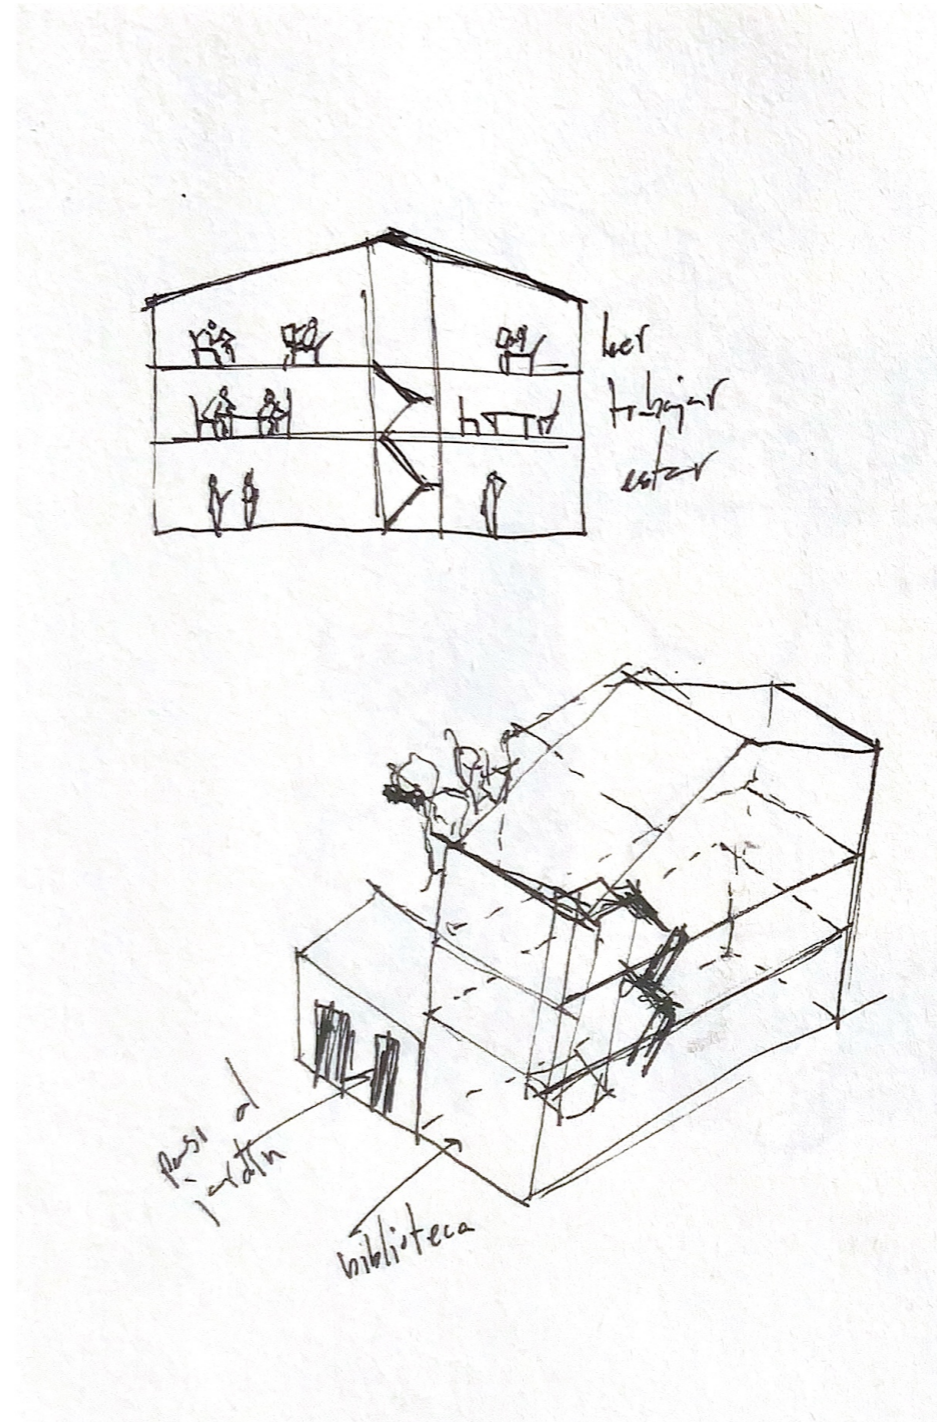 leer
trabajar
estar
paso al
jardín
biblioteca